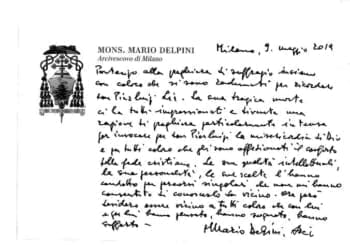 MONS. MARIO DELPINI
Arcivescovo di Milano
Milano, 9 maggio 2019
Partecipo alla preghiera di suffragio insieme
con coloro che si sono radunati per ricordare
don Pierluigi Lia. La sua tragica morte
ci ha tutti impressionati e diventa una
ragione di preghiera particolarmente intensa
per invocare per don Pierluigi la misericordia di Dio
e per tutti coloro che gli sono affezionati il conforto
della fede cristiana. Le sue qualità intellettuali,
la sua personalità, le sue scelte l'hanno
condotto per percorsi singolari che non mi hanno
consentito di conoscerlo da vicino. Ora però
desidero essere vicino a tutti coloro che con lui
e per lui hanno pensato, hanno sognato, hanno
sofferto -
+ Mario Delpini,